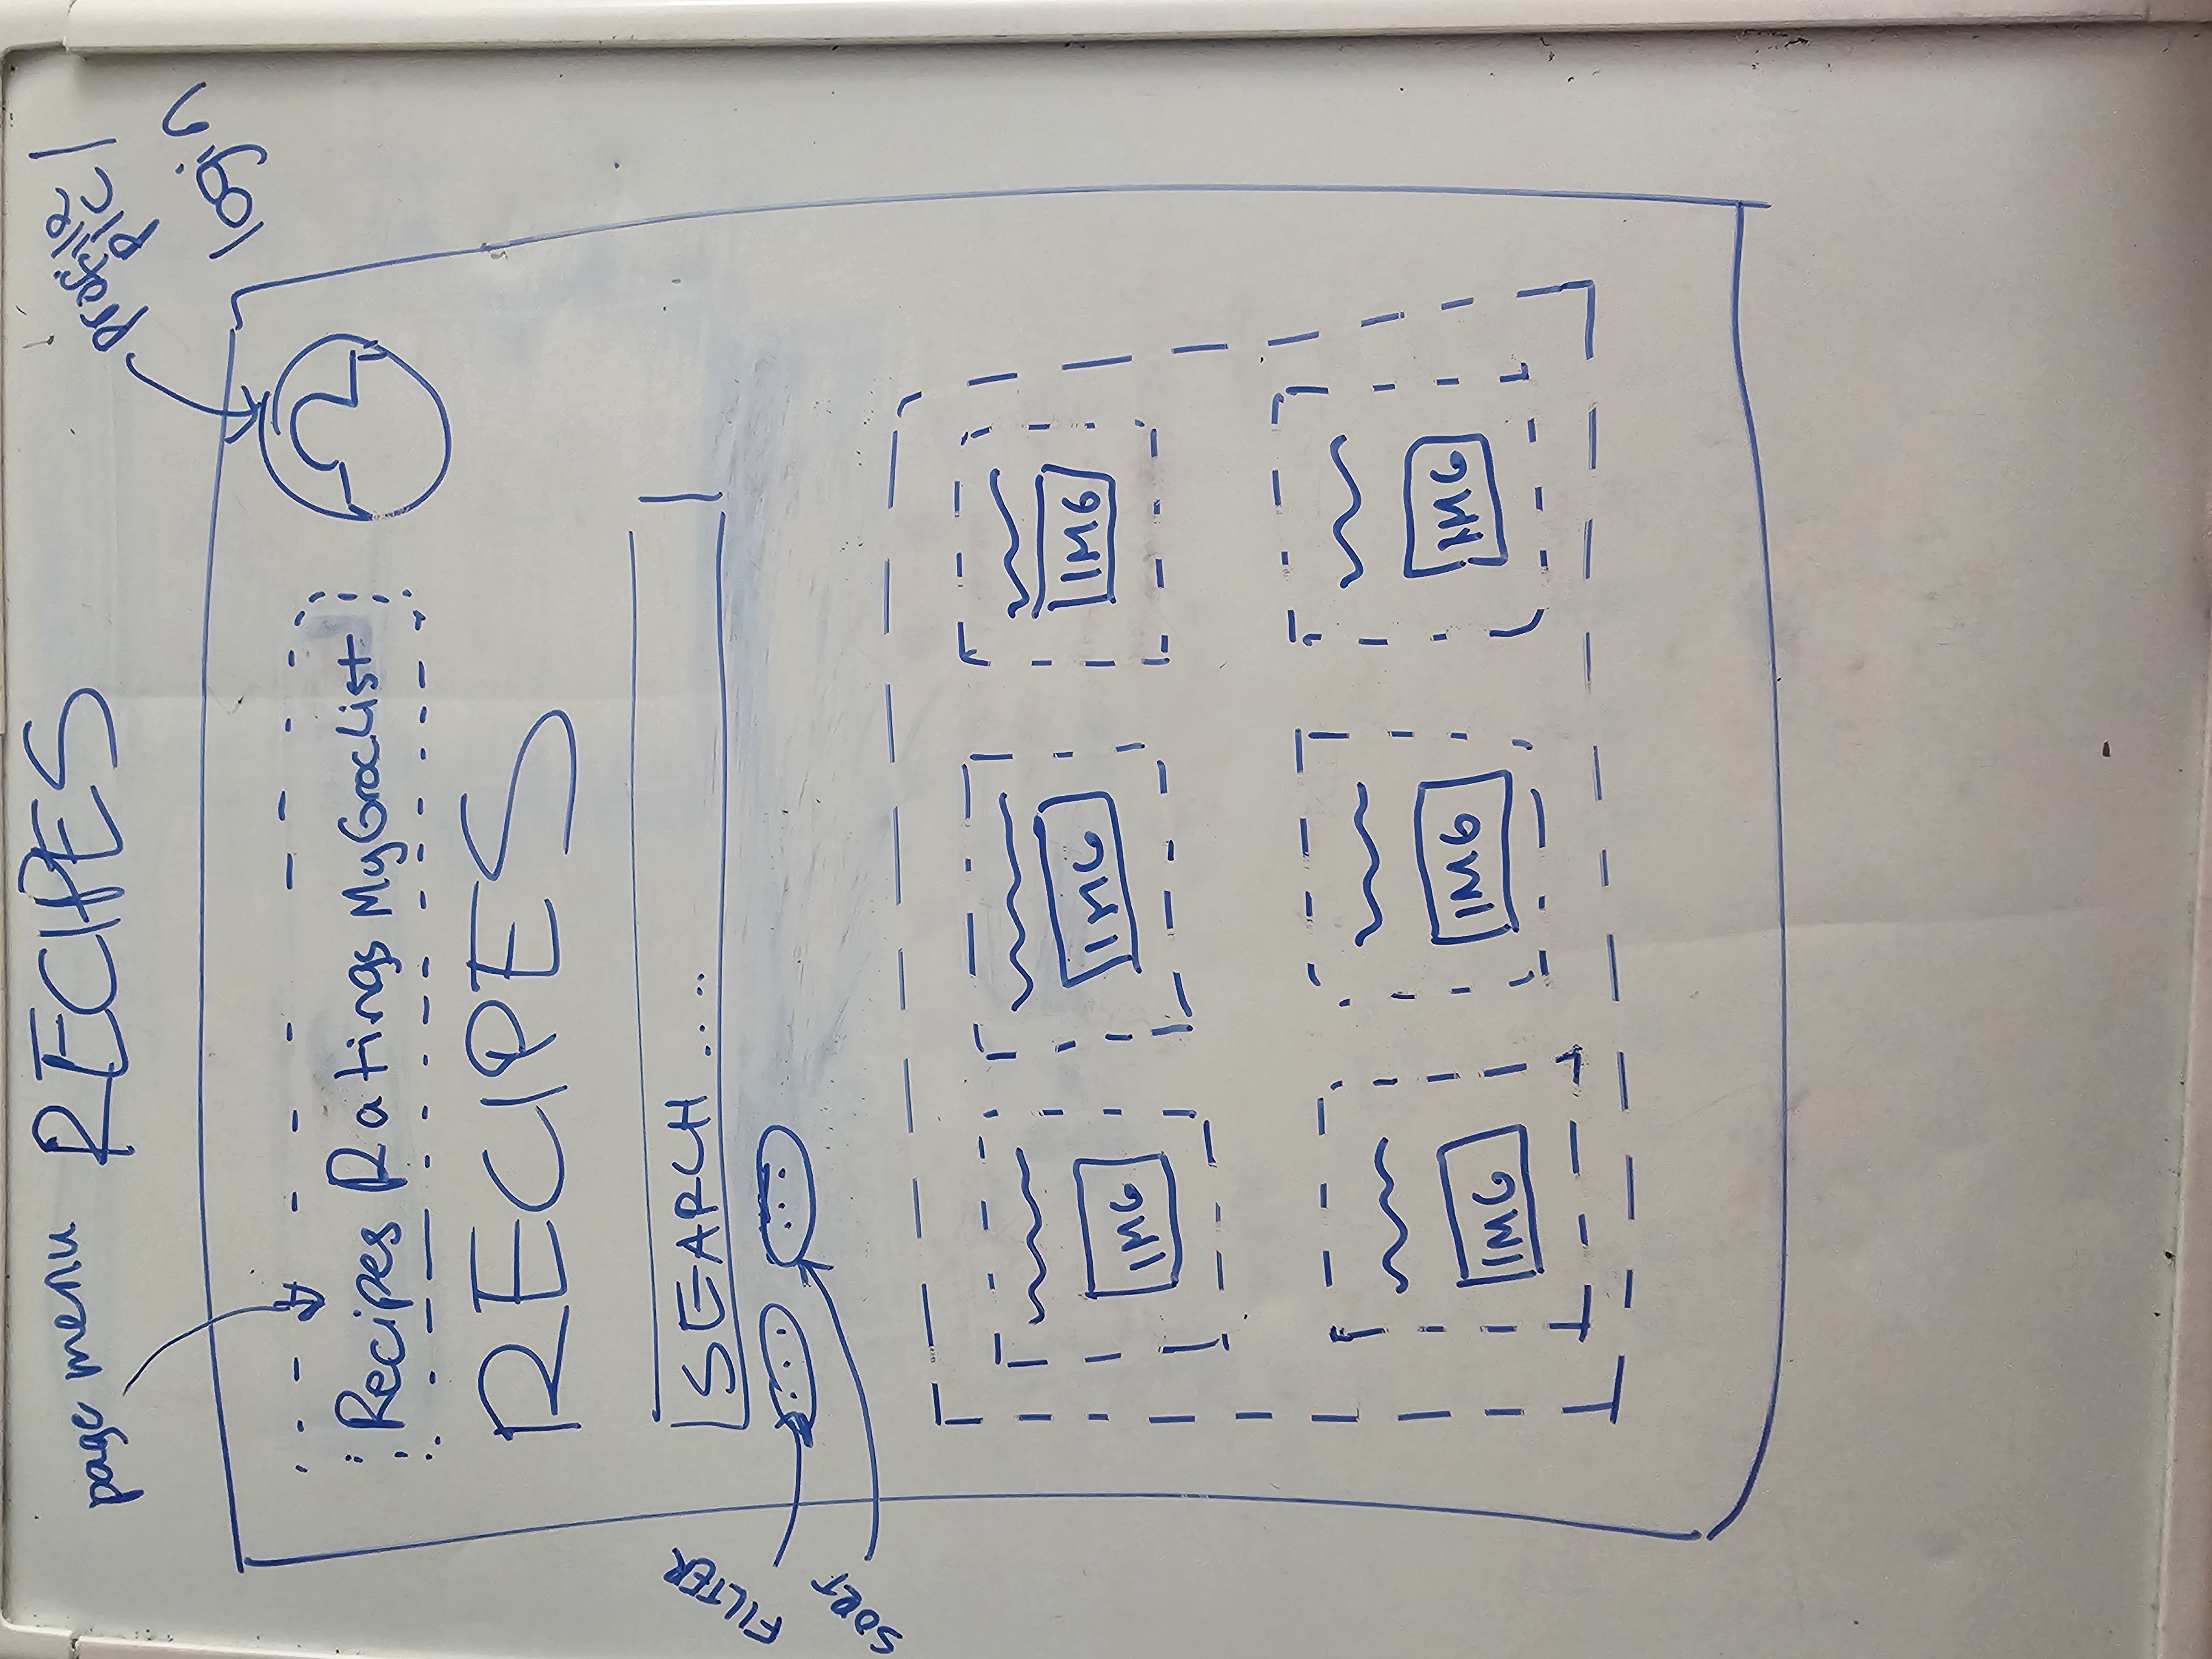 page menu
RECIPES
profile
pic /
login
Recipes Ratings MyGrocList
RECIPES
SEARCH ....
FILTER
...
...
SORT
IMG
IMG
IMG
IMG
IMG
IMG